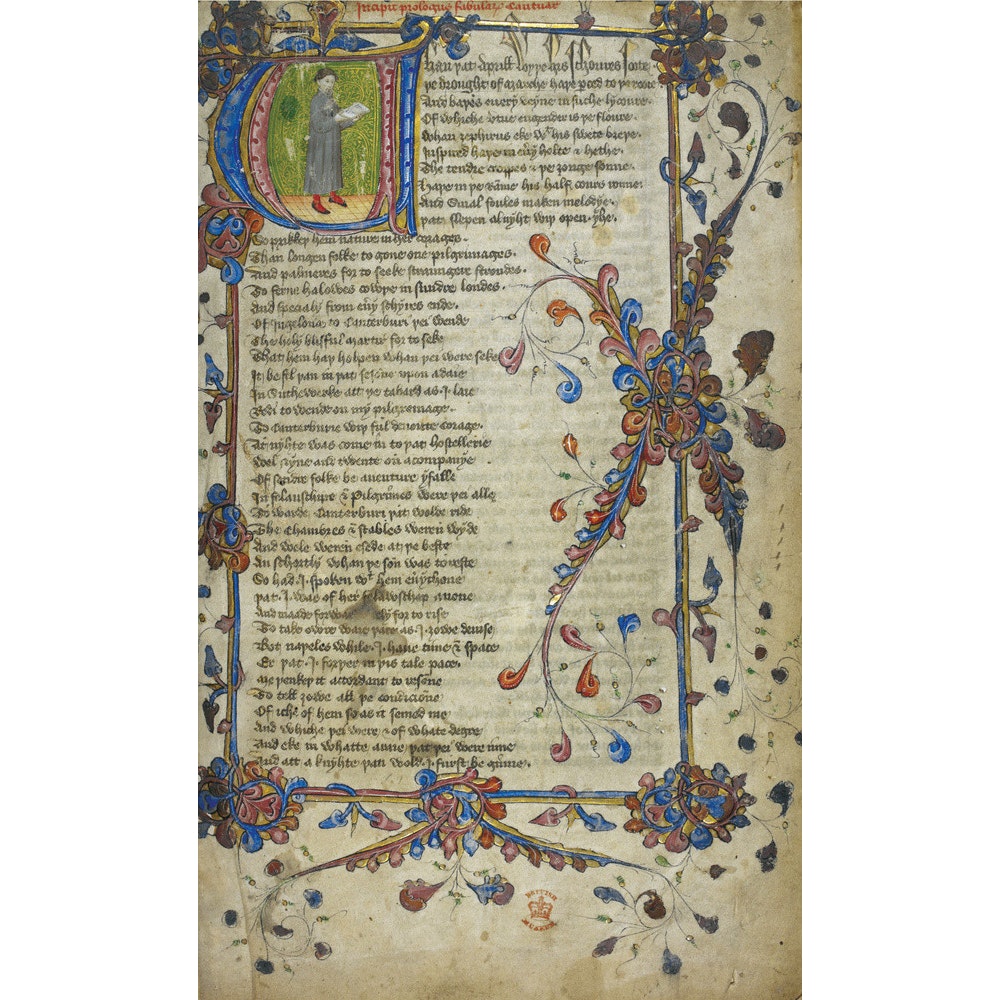 Incipit prologus fabularum Cantuar
Whan þat Aprill wyþ his schoures soote
þe drought of marche haþ perced to þe roote
And baþed euery veyne in suche lycoure
Of whiche vertue engendrid is þe floure
Whan zephirus eke wt his swete breþe
Inspired haþ in euy holte & heþe
The tendre croppes & þe zonge sonne
Haþe in þe Rame his half cours ronne
And Smal foules maken melodye
þat slepen al nyht wiþ open yhe
So prikkeþ hem nature in her corages
Than longen folke to gone one pilgrimages
And palmeres for to seeke straungeir strondes
To ferne halowes cowþe in sundre londes
And specialy from euy schyres ende
Of Ingelond to Canterburi þei wende
The holy blisful martir for to seke
That hem haþ holpen whan þei were seke
It befil þan in þat sesone vpon a daie
In Suthewerke att þe tabard as I laie
Redi to wende on my pilgreimage
To Canterburie wiþ ful deuoute corage
At nyhte was come in to þat hostellerie
Wel nyne and twente on a companye
Of sondir folke be auenture yfalle
In felauschipe & Pilgrimes were þei alle
To warde Canterburi þat wolde ride
The Chambres & stables weren wyde
And wele weren esede at þe beste
An schortly whan þe son was to reste
So had I spoken wt hem euychone
þat I was of her felawschep anone
And maade forwa ely for to rise
To take owre waie þere as I zowe deuise
Bot naþeles while I haue time & space
Er þat I forþer in þis tale pace
Me þenkeþ it accordant to resone
To tell zowe all þe condicione
Of iche of hem so as it semed me
And whiche þei were & of whate degre
And eke in whatte araie þat þei were inne
And att a knyhte þan wold I furst be ginne
BRITISH
MUSEUM